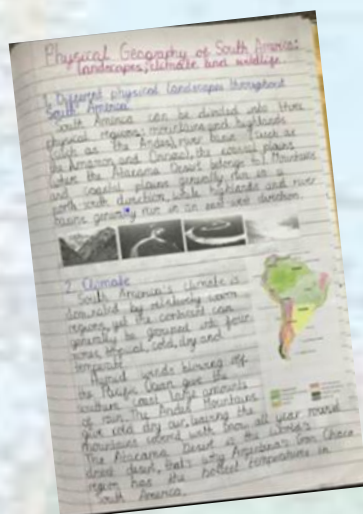 Physical Geography of South America:
landscapes, climate and wildlife.
1. Different physical landscapes throughout
South America
South America can be divided into three
physical regions: mountains and highlands
(such as the Andes), river basin (such as
the Amazon and Orinoco), the coastal plains
(where the Atacama Desert belongs to). Mountains
and coastal plains generally run in a
north-south direction, while highlands and river
basins generally run in an east-west direction.
2. Climate
South America's climate is
dominated by relatively warm
regions, yet the continent can
generally be grouped into four
zones, tropical, cold, dry and
temperate.
Humid winds blowing off
the Pacific Ocean give the
southern coast large amounts
of rain. The Andes Mountains
give cold dry air, leaving the
mountains covered with snow all year round.
The Atacama Desert is the world's
driest desert, that's why Argentina's Gran Chaco
region has the hottest temperature in
South America.